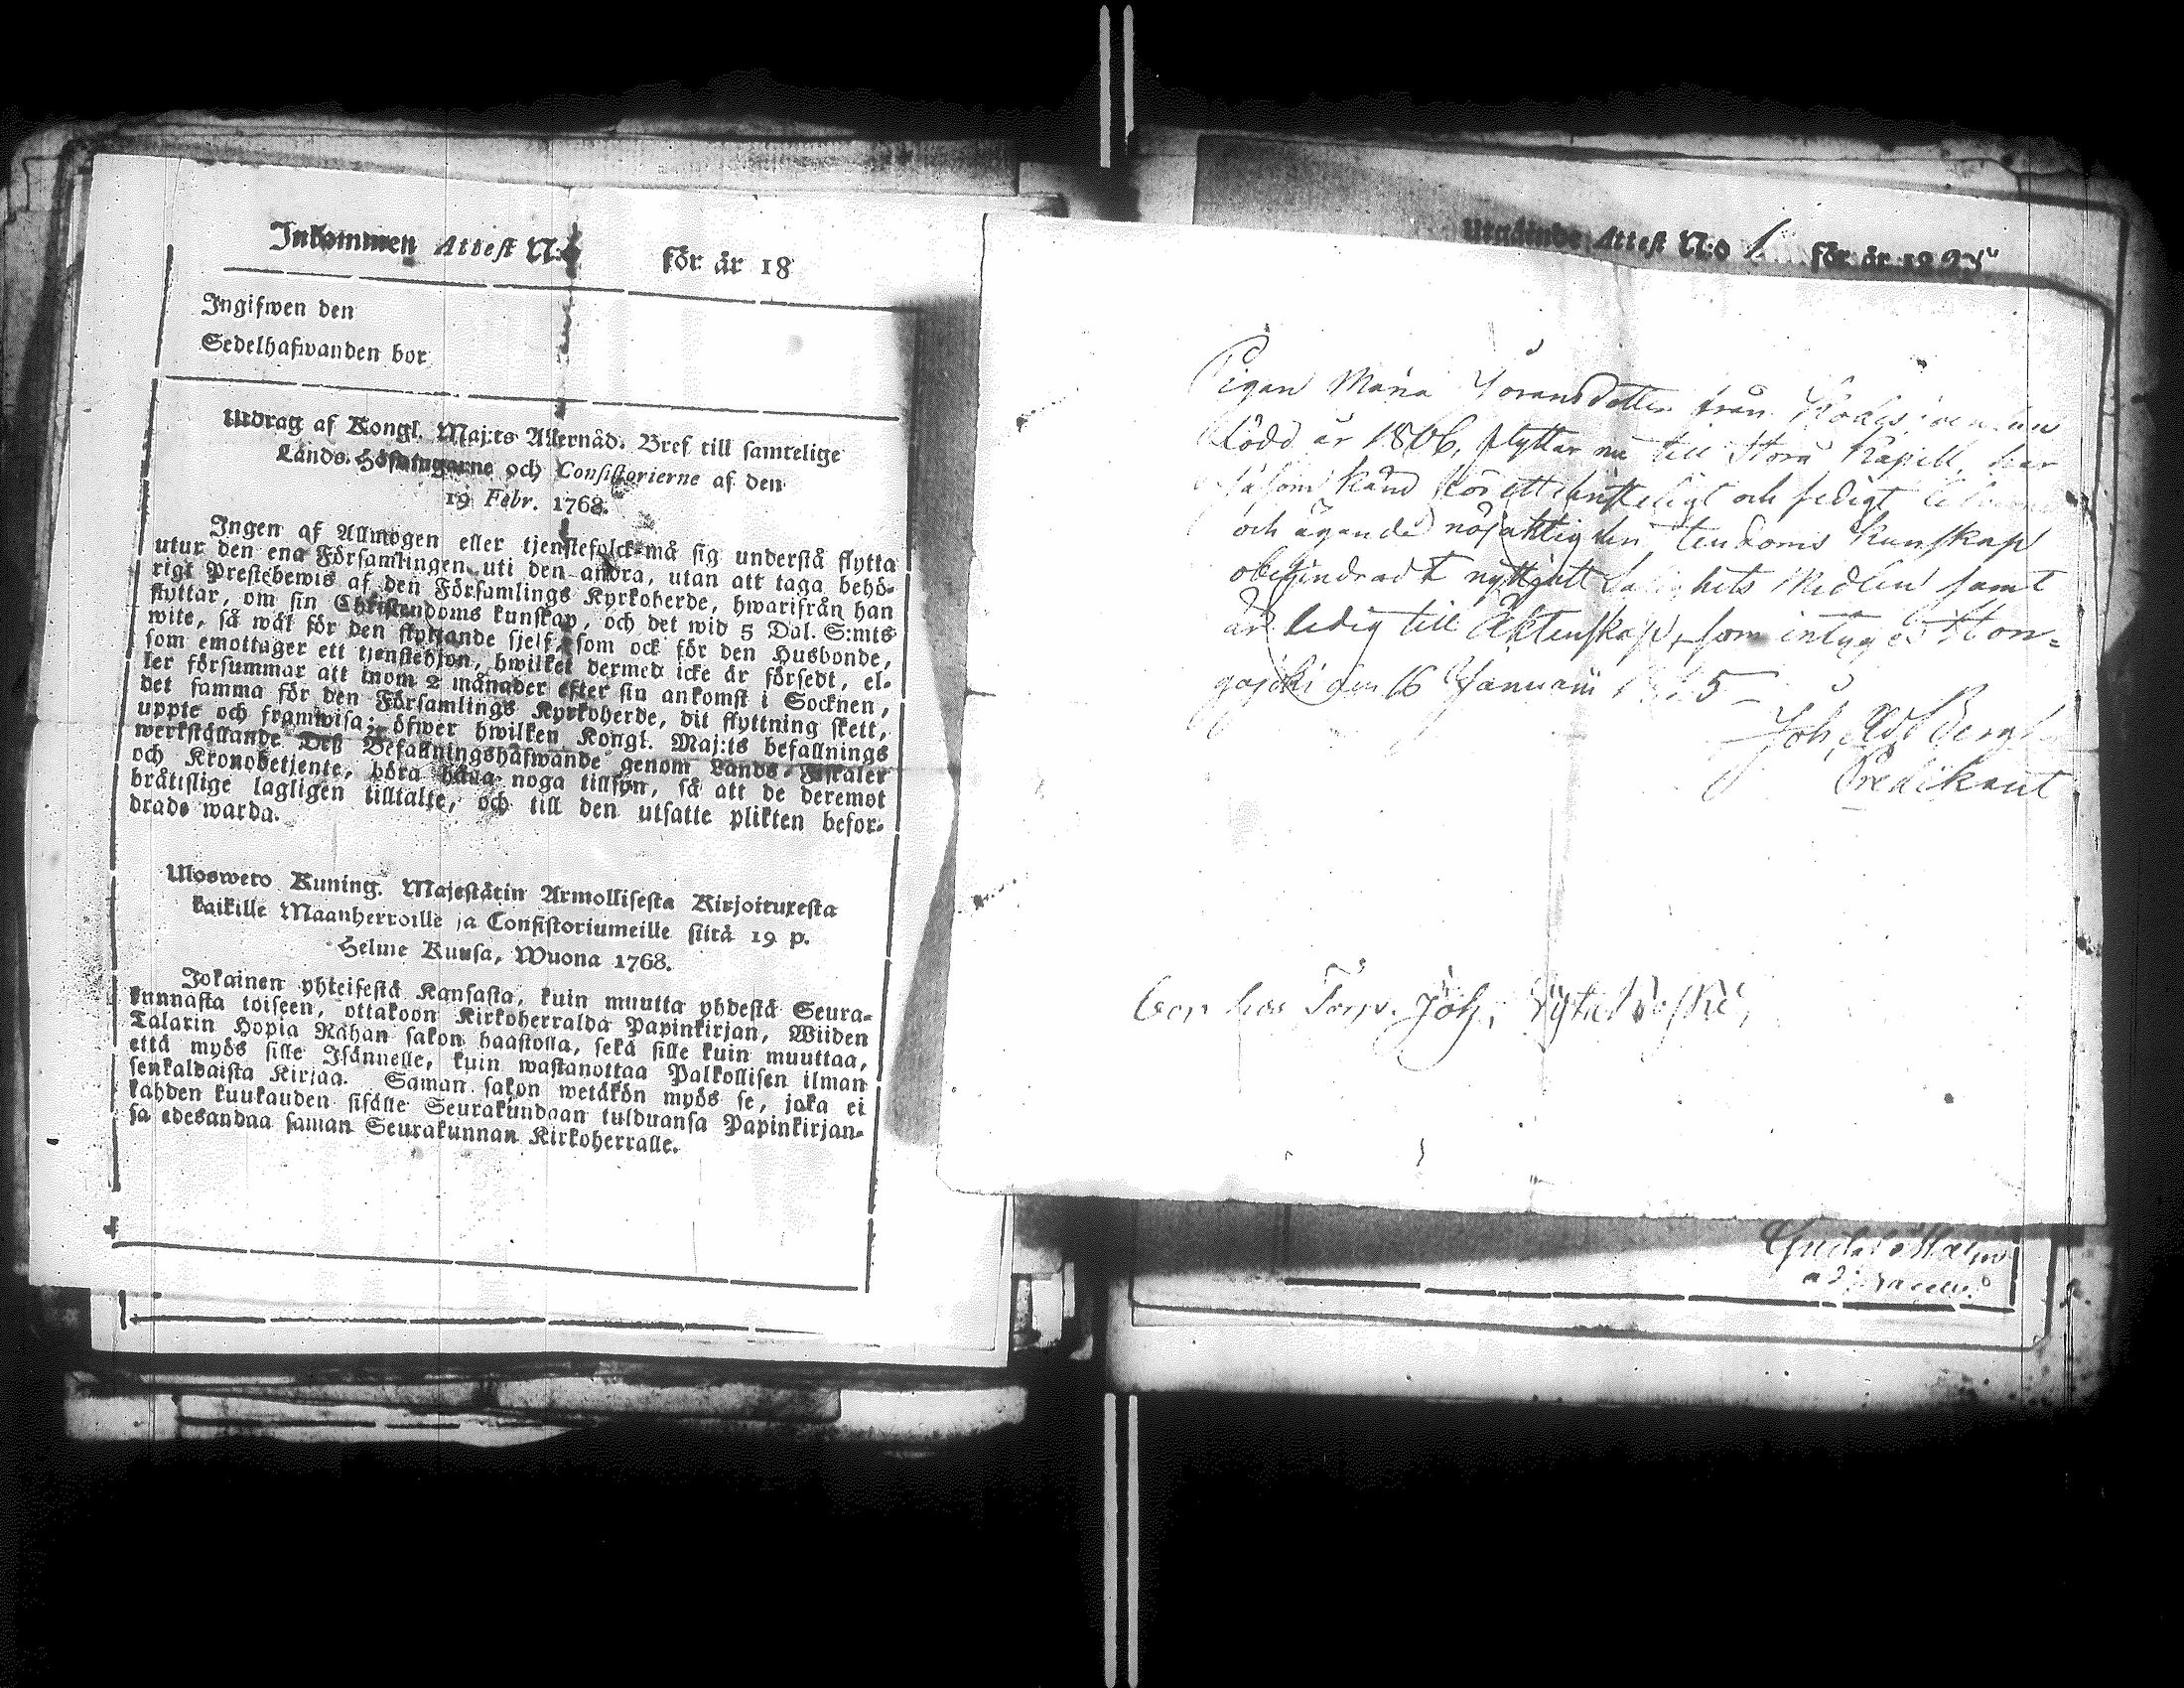 Inkommen Attest N:o för år 18
Ingifwen den
Sedelhafwanden bor
Utdrag af Kongl. Maj:ts Allernåd. Bref till samtelige
Lands-Höfdingarne och Consistorierne af den
19 Febr. 1768.
Ingen af Allmogen eller tjenstefolck må sig understå flytta
utur den ena Församlingen uti den andra, utan att taga behö-
rigt Prestebewis af den Församlings Kyrkoherde, hwarifrån han
flyttar, om sin Christendoms kunskap, och det wid 5 Dal. S:mts
wite, så wäl för den flyttande sjelf, som ock för den Husbonde,
som emottager ett tjenstehjon, hwilket dermed icke är försedt, el-
ler försummar att inom 2 månader efter sin ankomst i Socknen,
det samma för den Församlings Kyrkoherde, dit flyttning skett,
uppte och framwisa; öfwer hwilken Kongl. Maj:ts befallnings
werkställande Deß Befallningshafwande genom Lands-Fiskaler
och Kronobetjente, böra hålla noga tillsyn, så att de deremot
bråttslige lagligen tilltalte, och till den utsatte plikten befor-
drade warda.
Ulosweto Kuning. Majestätin Armollisesta Kirjoituxesta
kaikille Maanherroille ja Consistoriumeille siitä 19 p.
Helme Kuusa, Wuona 1768.
Jokainen yhteisestä Kansasta, kuin muutta yhdestä Seura-
kunnasta toiseen, ottakoon Kirkoherralda Papinkirjan, Wiiden
Talarin Hopia Rahan sakon haastolla, sekä sille kuin muuttaa,
että myös sille Isännelle, kuin wastanottaa Palkollisen ilman
senkaldaista Kirjaa. Saman sakon wetäkön myös se, joka ei
kahden kuukauden sisälle Seurakundaan tulduansa Papinkirjan-
sa edesandaa saman Seurakunnan Kirkoherralle.
Utgående Attest N:o 1 för år 1825
Pigan Maria Göransdotter från
född år 1806, flyttar nu till Stora Kapell, har
såsom känd för ett christeligt och sedigt lefverne
och ägande nöjaktig christendoms kunskap
obehindradt nyttjatt Salighets Medlen samt
är ledig till Äktenskap, som intygas Hon-
gajoki den 16 Januarii 1825
Joh. Bergh
Predikant
bor hos Torp. Joh.
Gustaf